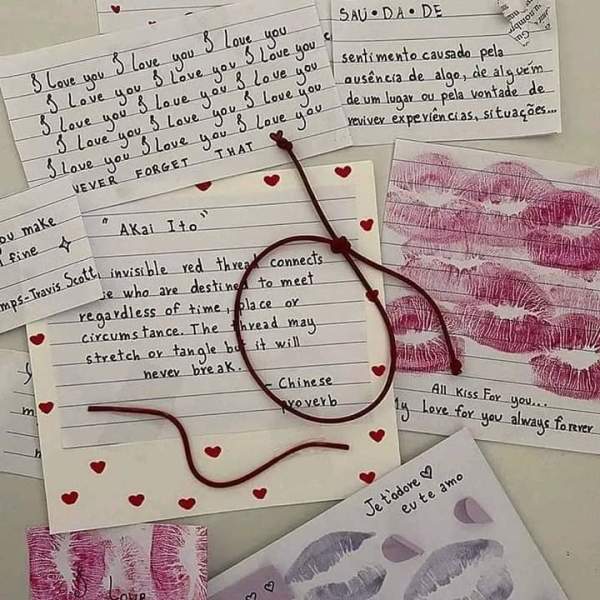 I Love you I Love you I Love you
I Love you I Love you I Love you
I Love you I Love you I Love you
I Love you I Love you I Love you
I Love you I Love you I Love you
NEVER FORGET THAT
SAU•DA•DE
sentimento causado pela
ausência de algo, de alguém
de um lugar ou pela vontade de
reviver experiências, situações...
you make
fine
-Travis Scott
"Akai Ito"
invisible red thread connects
who are destined to meet
regardless of time, place or
circumstance. The thread may
stretch or tangle but it will
never break.
- Chinese
proverb
All Kiss For you...
My Love for you always forever
Je t'adore
eu te amo
I Love